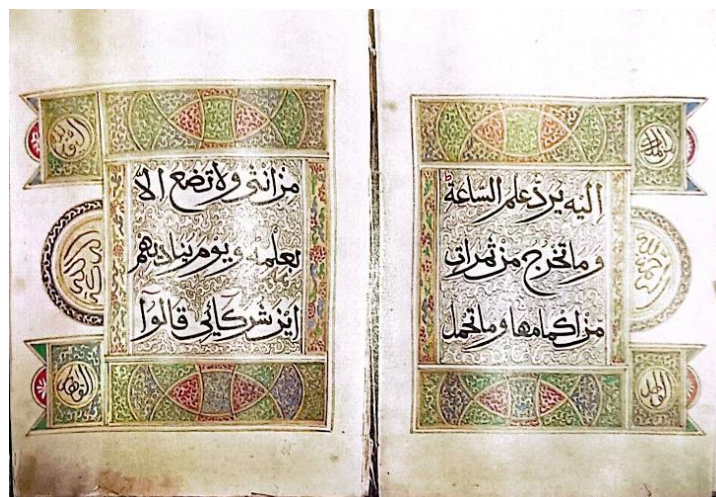 اِليْه يردّ علم السّاعة
وما تخرج من ثمرات
من اكمامها وما تحمل
من انثى ولا تضع الّا
بعلمه ويوم يناديهم
اين شركآئى قالوٓا